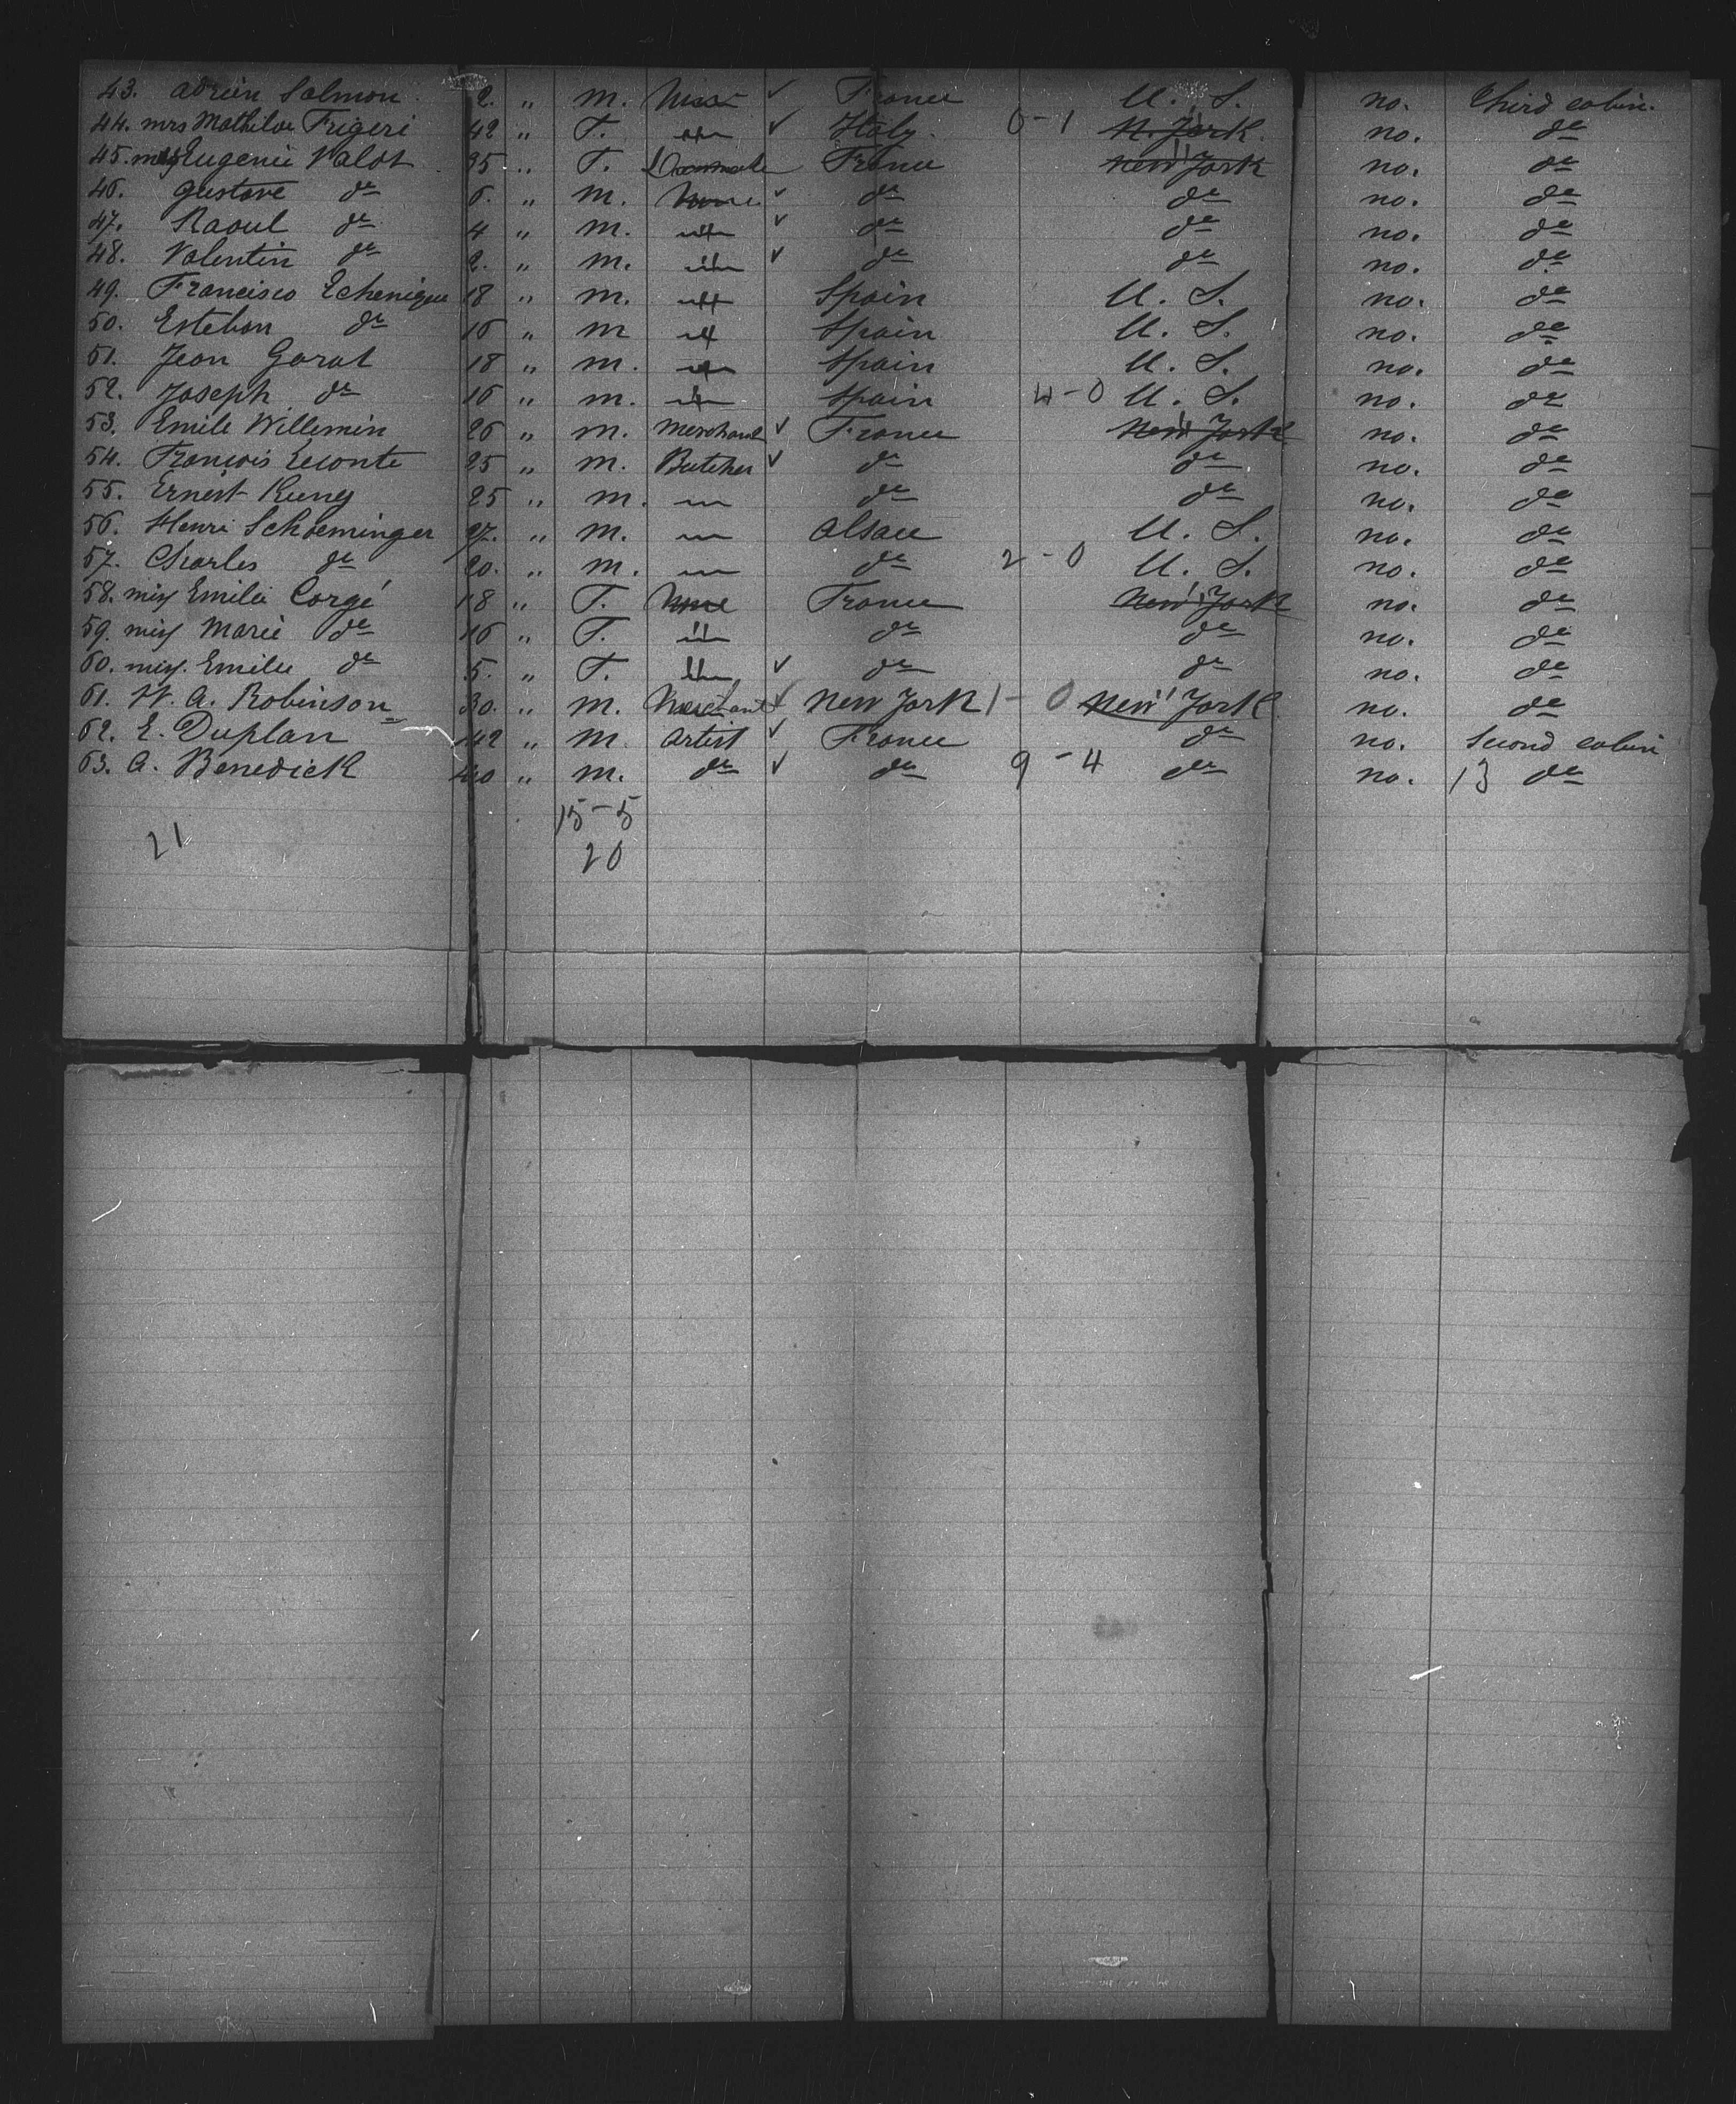 43. Adrien Salmon. 2. " M. ✓ France U. S. no. Third cabin.
44. Mrs Mathilde Frigeri 42 " F. " ✓ Italy. 0-1 N. York. no. do
45. Eugenie Valot 25 " F. France New York no. do
46. Gustave do 6. " M. None ✓ do do no. do
47. Raoul do 4 " M. " ✓ do do no. do
48. Valentin do 2. " M. " ✓ do do no. do
49. Francisco Echenique 18 " M. " Spain U. S. no. do
50. Esteban do 16 " M " Spain U. S. no. do
51. Jean Garat 18 " M. " Spain U. S. no. do
52. Joseph do 16 " M. " Spain 4-0 U. S. no. do
53. Emile Willemin 26 " M. Merchant ✓ France New York no. do
54. François Leconte 25 " M. Butcher ✓ do do no. do
55. Ernest Kung 25 " M. " do do no. do
56. Henri Schoeminger 27. " M. " Alsace U. S. no. do
57. Charles do 20. " M. " do 2-0 U. S. no. do
58. Miss Emilie Corgé 18 " F. None France New York no. do
59. Miss Marie do 16 " F. " do do no. do
60. Miss. Emilie do 5. " F. " ✓ do do no. do
61. W. A. Robinson 30. " M. Merchant ✓ New York 1-0 New York no. do
62. E. Duplan 42 " M. Artist ✓ France do no. Second cabin
63. A. Benedick 40 " M. do ✓ do 9-4 do no. 13 do
15-5
21 20